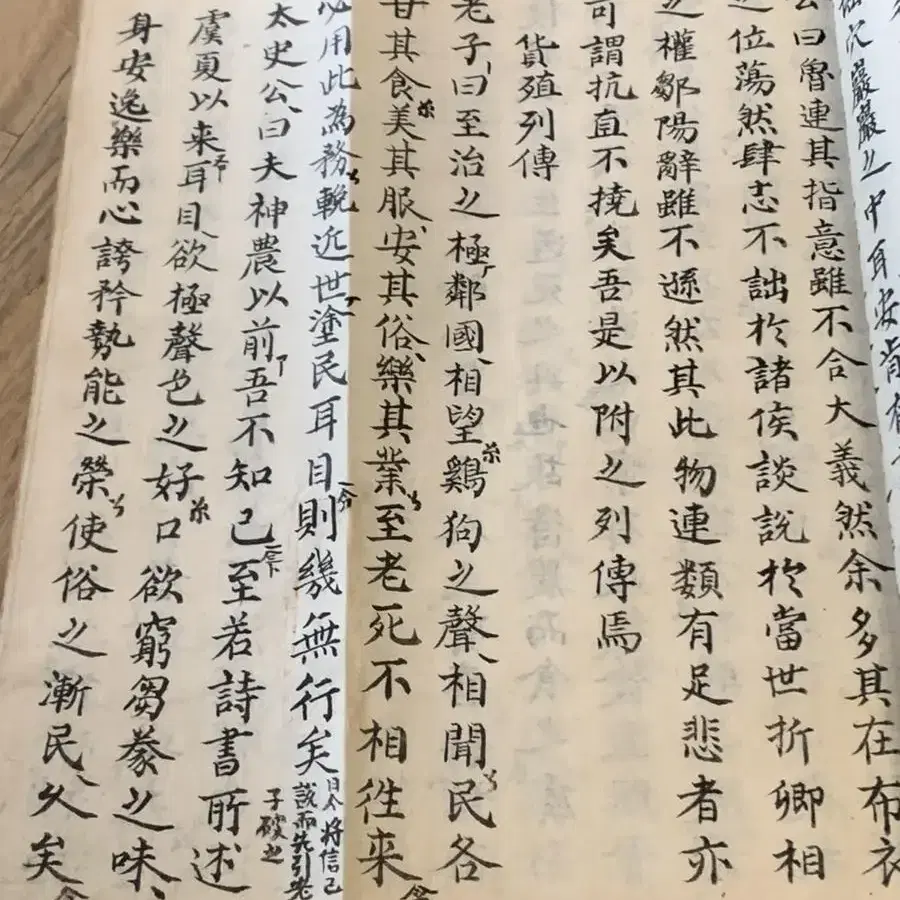 巖巖之中耳安
公曰魯連其指意雖不合大義然余多其在布衣
之位蕩然肆志不詘於諸侯談說於當世折卿相
之權鄒陽辭雖不遜然其此物連類有足悲者亦
可謂抗直不撓矣吾是以附之列傳焉
貨殖列傳
老子曰至治之極鄰國相望鷄狗之聲相聞民各
甘其食美其服安其俗樂其業至老死不相往来
必用此為務輓近世塗民耳目則幾無行矣
將信己說而先引老
子破之
太史公曰夫神農以前吾不知已至若詩書所述
虞夏以来耳目欲極聲色之好口欲窮芻豢之味
身安逸樂而心誇矜勢能之榮使俗之漸民久矣